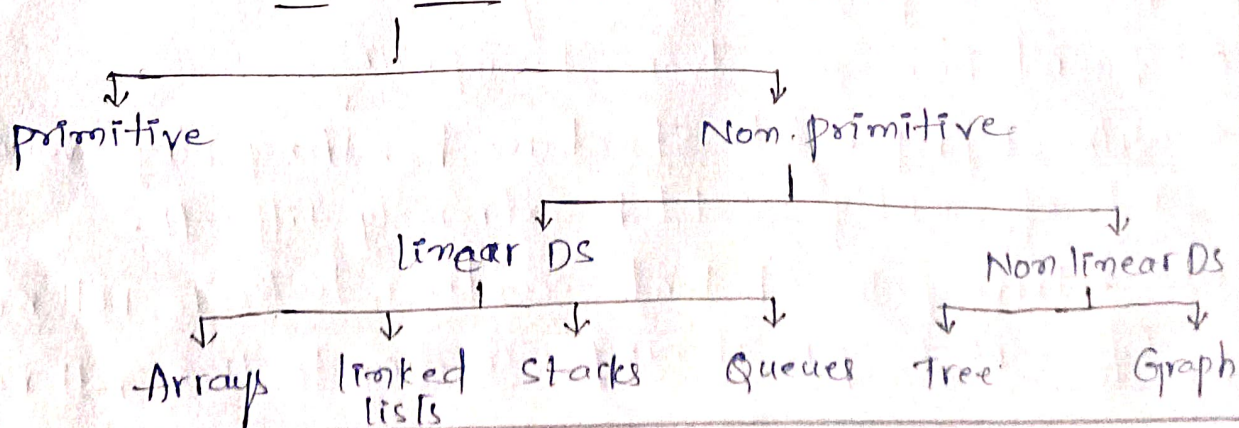 primitive
Non-primitive
linear DS
Non linear DS
Arrays
linked
lists
Stacks
Queues
Tree
Graph